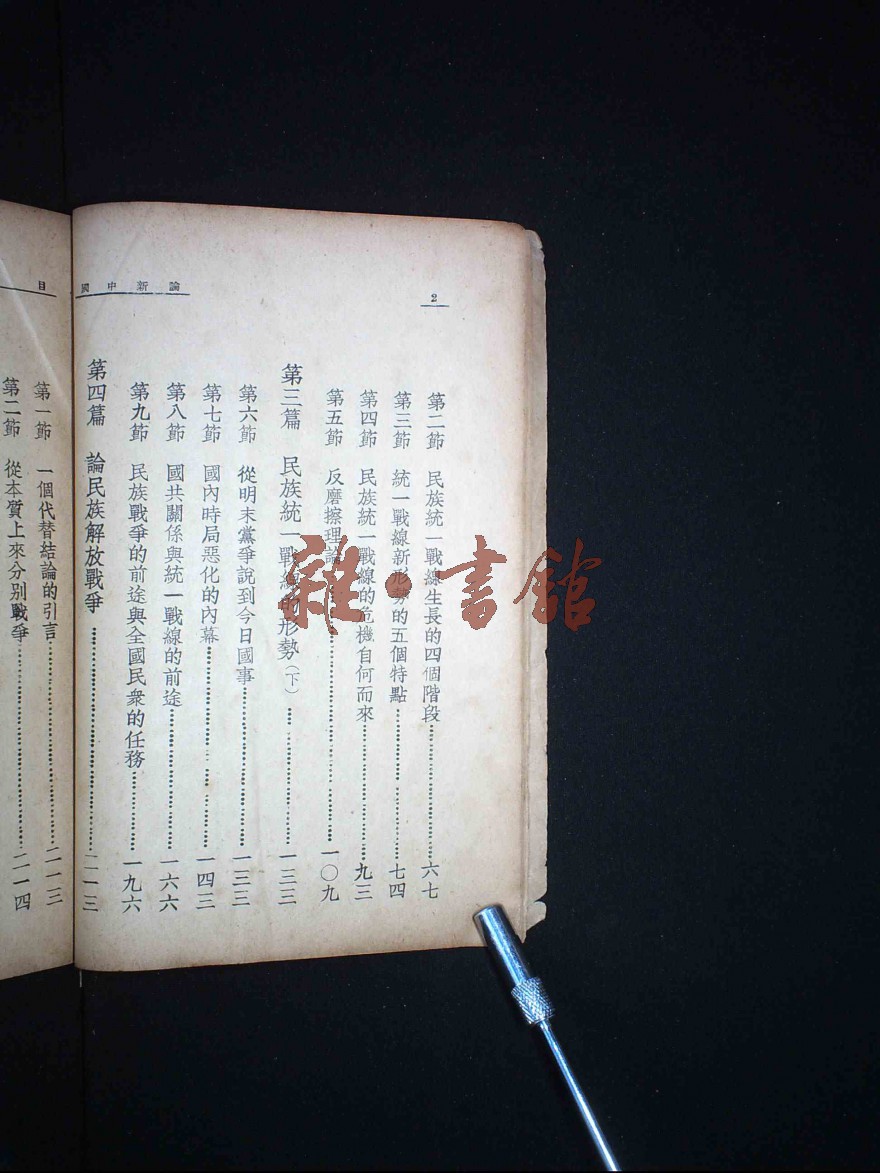 論新中國
2
第二節 民族統一戰線生長的四個階段……六七
第三節 統一戰線新形勢的五個特點……七四
第四節 民族統一戰線的危機自何而來……九三
第五節 反磨擦理論……一〇九
第三篇 民族統一戰線的形勢(下)……一三三
第六節 從明末黨爭說到今日國事……一三三
第七節 國內時局惡化的內幕……一四三
第八節 國共關係與統一戰線的前途……一六六
第九節 民族戰爭的前途與全國民衆的任務……一九六
第四篇 論民族解放戰爭……二一三
目
第一節 一個代替結論的引言……二一三
第二節 從本質上來分別戰爭……二一四
雜·書館